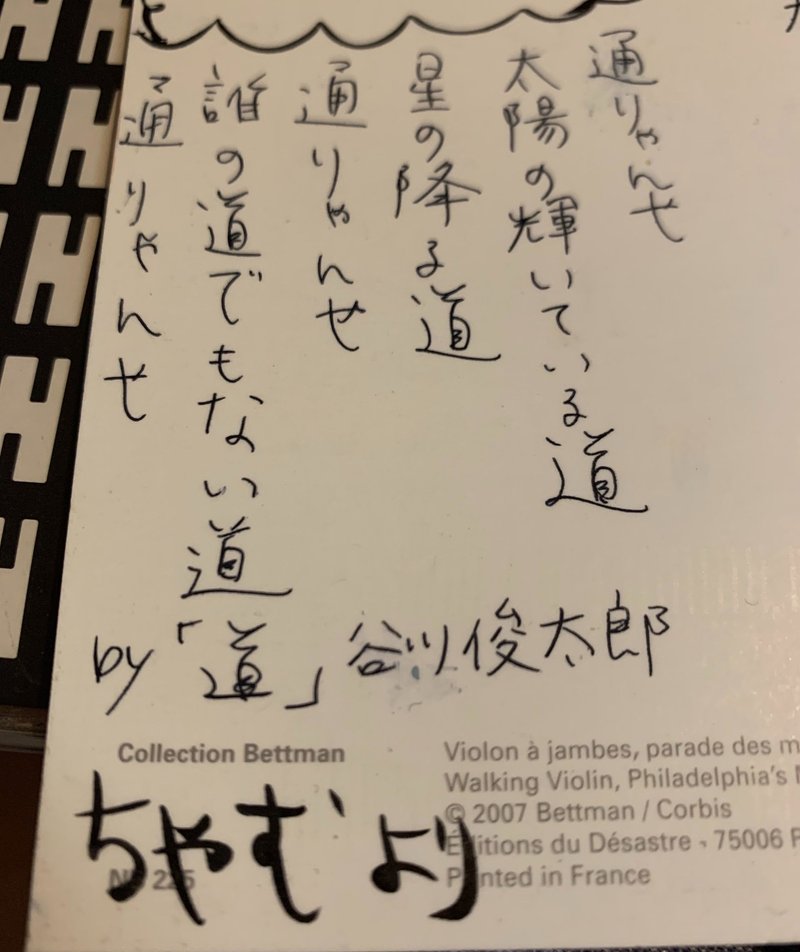 通りゃんせ
太陽の輝いている道
星の降る道
通りゃんせ
誰の道でもない道
通りゃんせ
by「道」谷川俊太郎
Collection Bettman
Violon à jambes, parade des
Walking Violin, Philadelphia's
© 2007 Bettman / Corbis
Éditions du Désastre - 75006
Printed in France
ちゃむより